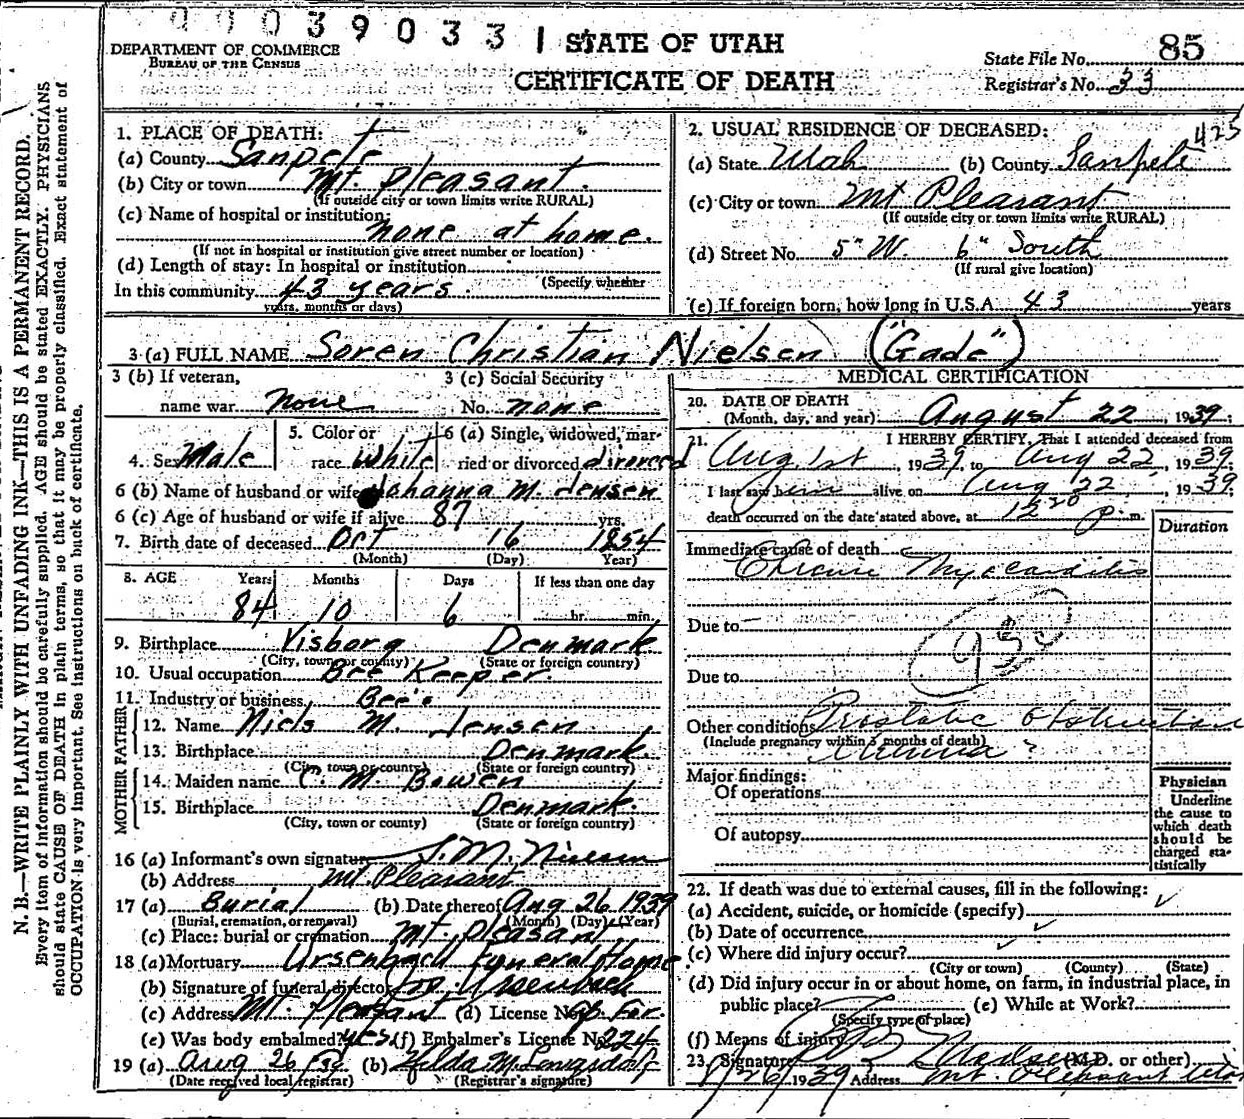 39033 1 STATE OF UTAH
DEPARTMENT OF COMMERCE
BUREAU OF THE CENSUS
CERTIFICATE OF DEATH
State File No. 85
Registrar's No. 33
N. B.—WRITE PLAINLY WITH UNFADING INK—THIS IS A PERMANENT RECORD.
Every item of information should be carefully supplied. AGE should be stated EXACTLY. PHYSICIANS
should state CAUSE OF DEATH in plain terms, so that it may be properly classified. Exact statement of
OCCUPATION is very important. See instructions on back of certificate.
1. PLACE OF DEATH:
(a) County Sanpete
(b) City or town Mt. Pleasant.
(If outside city or town limits write RURAL)
(c) Name of hospital or institution:
none at home.
(If not in hospital or institution give street number or location)
(d) Length of stay: In hospital or institution
(Specify whether
In this community 43 years.
years, months or days)
2. USUAL RESIDENCE OF DECEASED: 425
(a) State Utah (b) County Sanpete
(c) City or town Mt Pleasant
(If outside city or town limits write RURAL)
(d) Street No. 5" W. 6" South
(If rural give location)
(e) If foreign born, how long in U.S.A. 43 years
3 (a) FULL NAME Soren Christian Nielsen ("Gade")
3 (b) If veteran,
name war none
3 (c) Social Security
No. none
4. Sex Male
5. Color or
race White
6 (a) Single, widowed, mar-
ried or divorced divorced
6 (b) Name of husband or wife Johanna M. Jensen
6 (c) Age of husband or wife if alive 87 yrs.
7. Birth date of deceased Oct 16 1854
(Month) (Day) Year)
8. AGE Years Months Days If less than one day
84 10 6 hr. min.
9. Birthplace Visborg Denmark
(City, town or county) (State or foreign country)
10. Usual occupation Bee Keeper.
11. Industry or business Bee's
FATHER
12. Name Niels M. Jensen
13. Birthplace Denmark.
(City, town or county) (State or foreign country)
MOTHER
14. Maiden name C. M. Bowen
15. Birthplace Denmark.
(City, town or county) (State or foreign country)
16 (a) Informant's own signature S. M. Nielsen
(b) Address Mt. Pleasant
17 (a) Burial (b) Date thereof Aug 26 1939
(Burial, cremation, or removal) (Month) (Day) (Year)
(c) Place: burial or cremation Mt. Pleasant
18 (a) Mortuary Ursenbach Funeral Home
(b) Signature of funeral director Ursenbach
(c) Address Mt. Pleasant (d) License No.
(e) Was body embalmed? yes (f) Embalmer's License No. 224
19 (a) Aug 26 39 (b) Hilda M. Longsdorf
(Date received local registrar) (Registrar's signature)
MEDICAL CERTIFICATION
20. DATE OF DEATH
(Month, day, and year) August 22, 1939.
21. I HEREBY CERTIFY, That I attended deceased from
Aug 1st, 1939, to Aug 22, 1939.
I last saw him alive on Aug 22, 1939.
death occurred on the date stated above, at 12 20 p. m.
Duration
Immediate cause of death
Chronic Myocarditis
Due to 93c
Due to
Other conditions Prostatic Obstruction
(Include pregnancy within 3 months of death)
Uremia ?
Major findings:
Of operations
Of autopsy
Physician
Underline
the cause to
which death
should be
charged sta-
tistically
22. If death was due to external causes, fill in the following:
(a) Accident, suicide, or homicide (specify)
(b) Date of occurrence
(c) Where did injury occur?
(City or town) (County) (State)
(d) Did injury occur in or about home, on farm, in industrial place, in
public place? (e) While at Work?
(Specify type of place)
(f) Means of injury
23. Signature Madsen (M.D. or other)
1939 Address Mt. Pleasant Utah